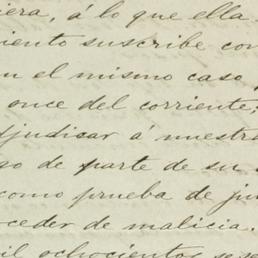 iera, á lo que ella
iento suscribe con
n el mismo caso
once del corriente,
djudicar á nuestra
go de parte de su
como prueba de ju
oceder de malicia.
il ochocientos sese